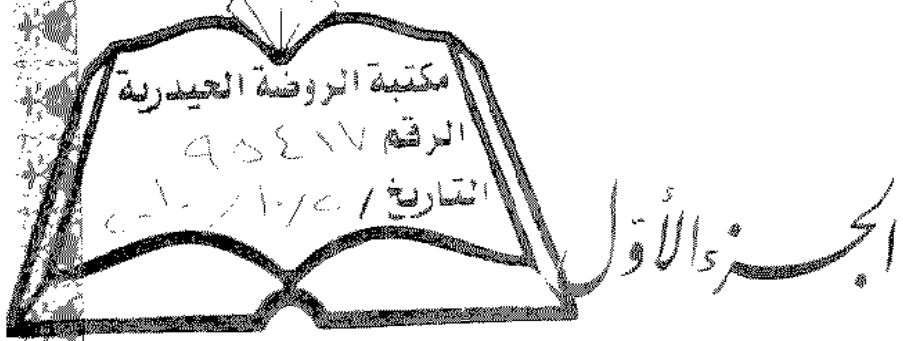 مكتبة الروضة الحيدرية
الرقم ٩٥٤١٧
التاريخ /
الجزء الأول